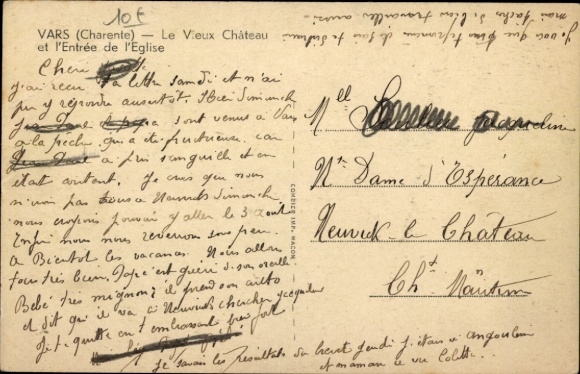 10 €
VARS (Charente) — Le Vieux Château
et l'Entrée de l'Eglise
Je vois que
de bien travailler aussi
Chérie
j'ai reçu ta lettre samedi et n'ai
pu y répondre aussitôt. Hier dimanche
et papa sont venus à Vars
à la pêche qui a été fructueuse car
a pris anguille et en
était content. Je crois que nous
n'irons pas tous à Nanteuil dimanche
nous croyons pouvoir y aller le 3 août
Enfin nous nous reverrons sous peu.
A Bientôt les vacances. Nous allons
tous très bien. Papa est guéri de son oreille
Bébé très mignon il prend son auto
et dit qu'il va à Neuvick chercher Jacqueline
Je te quitte en t'embrassant bien fort
je savais les résultats du brevet jeudi j'étais à Angoulême
et maman a vu Colette
Mlle Jacqueline
Nt Dame d'Espérance
Neuvick le Château
Cht Maritime
COMBIER IMP. MACON